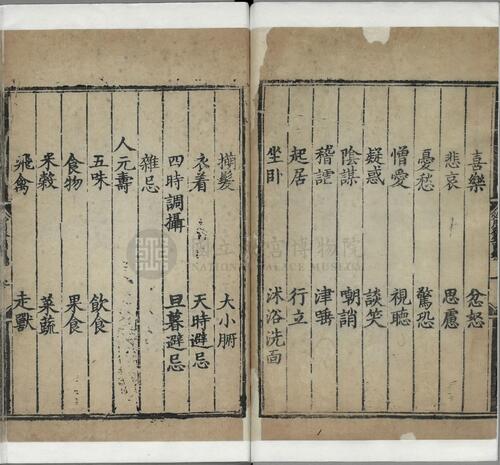 喜樂 忿怒
悲哀 思慮
憂愁 驚恐
憎愛 視聽
疑惑 談笑
陰謀 嘲誚
津唾
起居 行立
坐卧 沐浴洗面
髮 大小腑
衣着 天時避忌
四時調攝 旦暮避忌
雜忌
人元壽
五味 飲食
食物 果食
米穀 菜蔬
飛禽 走獸
國立故宮博物院
NATIONAL PALACE MUSEUM